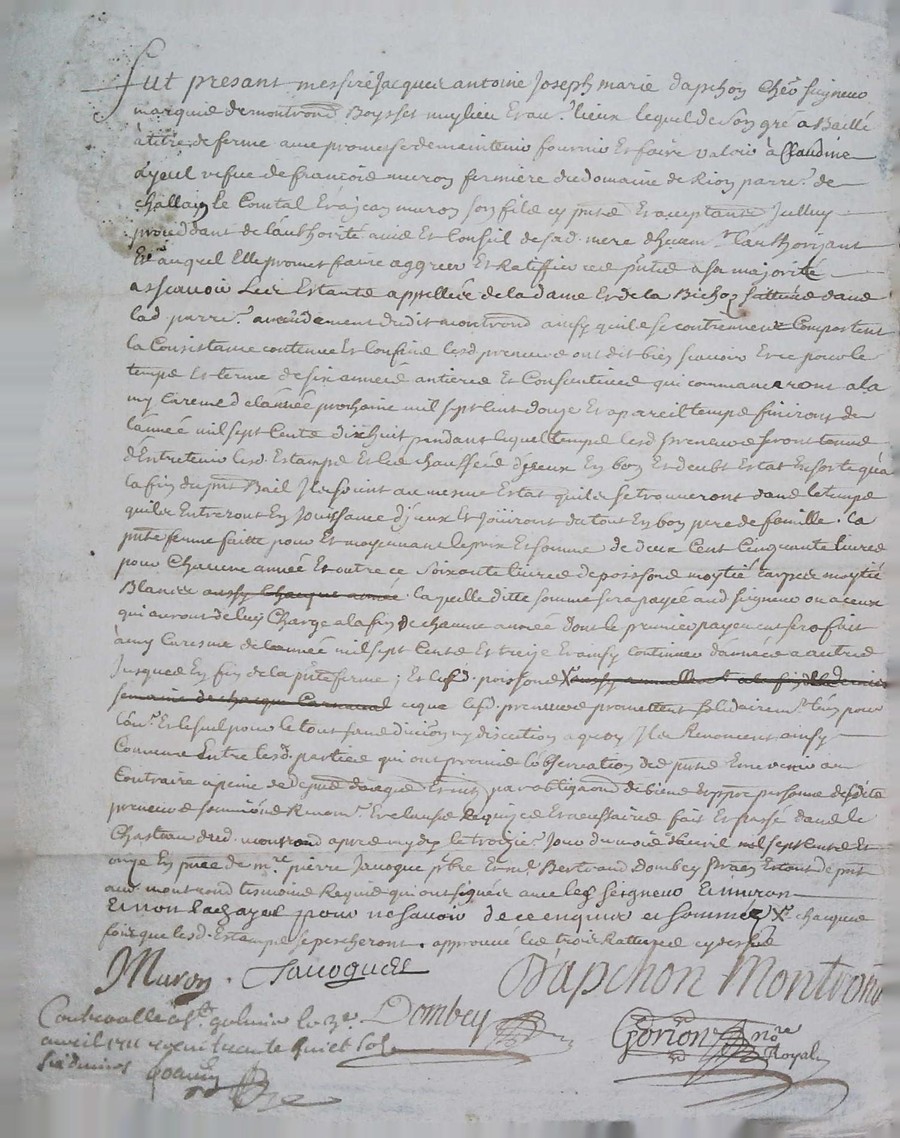 fut presant messire Jacques antoine Joseph marie dapchon cheor seigneur
marquis de montrond Boysset meylieu et au.e lieux lequel de son gré a Baillé
a titre de ferme avec promesse de maintenir fournir et faire valoir à Claudine
veufve de françois muron fermiere du domaine de Rion parr.e de
challain le Comtal et à jean muron son fils cy pnt et acceptants
proceddant de l'authorité avis et Conseil de sad. mere l'authorisant
et auquel Elle promet faire aggreer et Ratiffier ces pntes a sa majorité
a scavoir Les Estants appellés de la dame et de la Bichon scittués dans
lad. parre. mandement dudit montrond ainsy qu'ils se contiennent Comportent
la Consistance contenue et Confins lesd. preneurs ont dit bien scavoir et ce pour le
temps et terme de six années antieres et Consecutives qui commanceront a la
my Careme de l'année prochaine mil sept cent douze et a pareil temps finiront de
l'année mil sept Cents dixhuit pendant lequel temps lesd. preneurs seront tenus
d'Entretenir lesd. Estamps et les chaussées d'yceux En bon et deubt Estat en sorte qu'a
la fin du pnt Bail Ils soient au mesme Estat qu'ils se trouveront dans le temps
qu'ils Entreront En Jouissance d'yceux et Jouiront du tout En bon pere de famille. la
pnte ferme faitte pour et moyennant le prix et somme de deux Cent Cinquante livres
pour Chacune année et outre ce soixante livres de poissons moytié carpes moytié
Blancs ausy chaque année laquelle ditte somme sera payée aud. seigneur ou a ceux
qui auront de luy Charge a la fin de chacune année dont le premier payement sera fait
à my Caresme de l'année mil sept Cents et treize et ainsy continuer d'année a autres
Jusques En fin de la pnte ferme; Et lesd. poissons X
semaine de chaque Carnaval ce que lesd. preneurs promettent solidairem.t l'un pour
l'au.e et le seul pour le tout sans division ny discution a quoy Ils Renoncent ainsy
Convenu Entre lesd. parties qui ont promis l'observation des pntes et ne venir au
Contraire a peine de tous despens domages et interets par obligaon de biens et ppre personne desdits
preneurs soumiôns Renon. et clauses Requises et necessaires fait et passé dans le
Chasteau dud. montrond apres mydy le troisie. Jour du mois d'avril mil sept cents et
onze En pnce de m.re pierre Jacoque pbre et m.r Bertrand Dombey de pnt
aud. montrond tesmoins Requis qui ont signés avec led. seigneur et muron
et non pour ne scavoir de ce enquise et sommée X chacques
fois que lesd. Estamps se pescheront. approuvé les trois Rattures cy dessus
JMuron. Jacoques D'apchon Montrond
Dombey Gorion no.re
Royal
Controollé a s.t galmier le 3e.
avril 1711 receu trente huict sols
six deniers